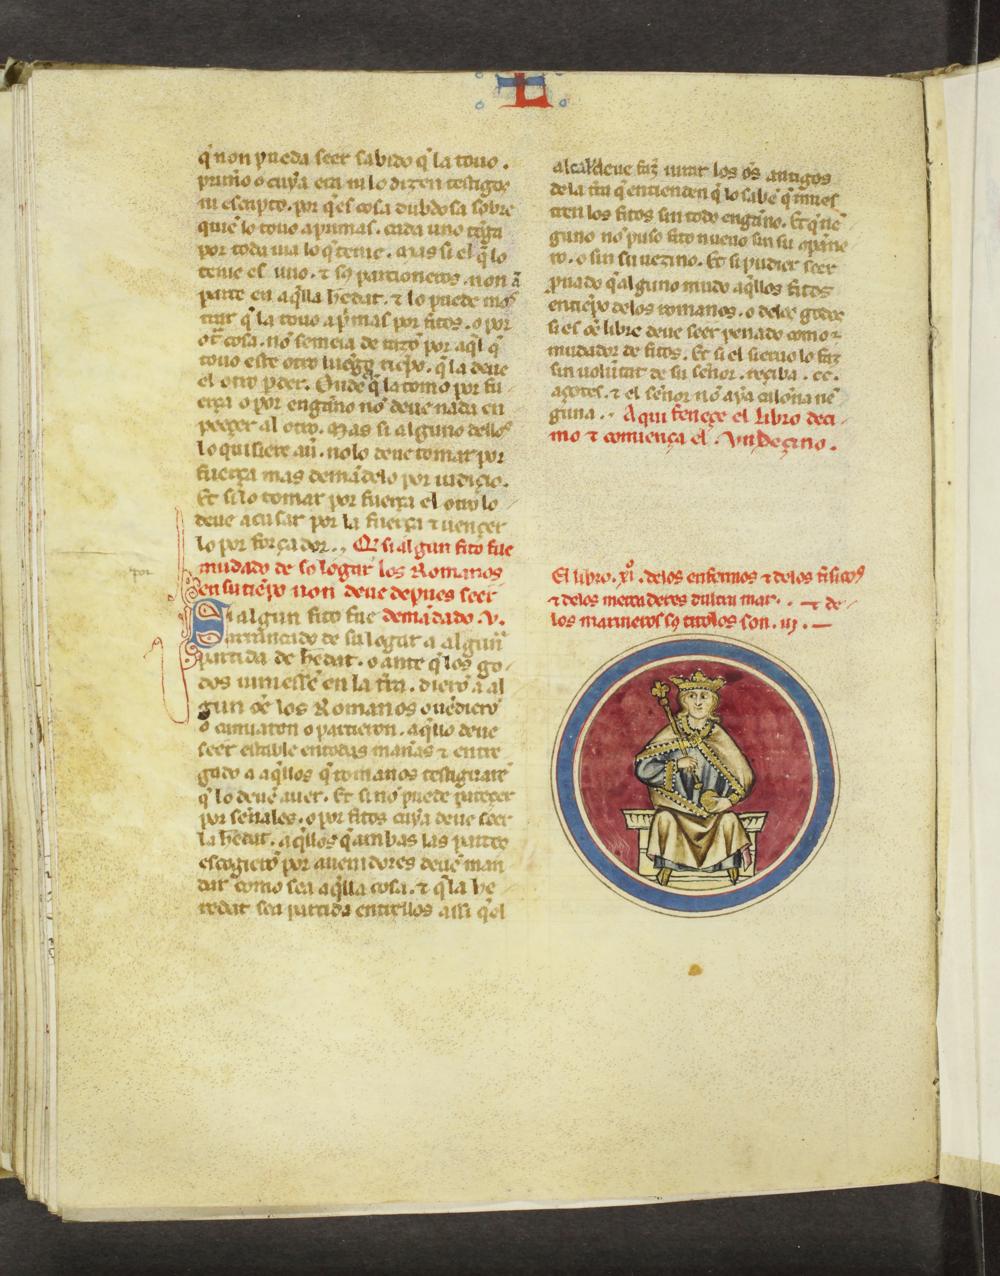 L
q̃ non pueda seer sabido q̃ la touo.
prim̃o o cuya era ni lo dizen testigos
ni escripto. por q̃ es cosa dubdosa sobre
quiẽ lo touo a primas. cada uno tẽga
por toda uia lo q̃ tenie. Mas si el q̃ lo
tenie es uno. ⁊ sꝯ parcioneros. non ã
parte en aq̃lla hedat. ⁊ lo puede mos
trar q̃ la touo a p̃mas por fitos. o por
ot̃ cosa. nõ semeia de razõ por aq̃l q̃
touo este otro luẽgo tiẽpo. q̃ la deue
el otro p̃der. Onde q̃ la tomo por fu
erça o por enganno nõ deue nada en
peeçer al otro. Mas si alguno dellos
lo quisiere auer. nolo deue tomar por
fuerça mas demãdelo por iudiçio.
Et si lo tomar por fuerça el otro lo
deue acusar por la fuerça ⁊ uençer
lo por forçador.. Q̃ si algun fito fue
mudado de so logar los Romanos
por
en su tiẽpo non deue depues seer
Si algun fito fue demãdado. v.
arrancado de su logar a algũa
partida de hedat. o ante q̃ los go
dos uiniessẽ en la trr̃a. dierõ a al
gun oẽ los Romanos o uẽdierõ
o camiaron o partieron. aq̃llo deue
seer estable en todas manas ⁊ entre
gado a aq̃llos q̃ romanos testiguarẽ
q̃ lo deuẽ auer. Et si nõ puede pareçer
por sennales. o por fitos cuya deue seer
la hedat. aq̃llos q̃ ambas las partes
escogierõ por auenidores deuẽ man
dar como sea aq̃lla cosa. ⁊ q̃ la he
redat sea partida entrellos assi q̃ el
alcalde deue faz̃ iurar los oẽs antigos
de la trr̃a q̃ entienden q̃ lo sabẽ q̃ mues
tren los fitos sin todo enganno. Et q̃ nẽ
guno nõ puso fito nueuo sin su aparçe
ro. o sin su uezino. Et si pudier seer
prouado q̃ alguno mudo aq̃llos fitos
en tiẽpo de los romanos. o delos godos
si es oẽ libre deue seer penado como
mudador de fitos. Et si el sieruo lo faz
sin voluntat de su sennor. reçiba. cc.
açotes. ⁊ el sennor nõ aya calonna nẽ
guna.. Aqui feneçe el Libro deçi
mo ⁊ comiença el. Vndeçimo.
El libro. xi. delos enfermos ⁊ delos fisicos
⁊ delos mercaderes dultra mar.. ⁊ de
los marineros sꝯ titolos son. iij.